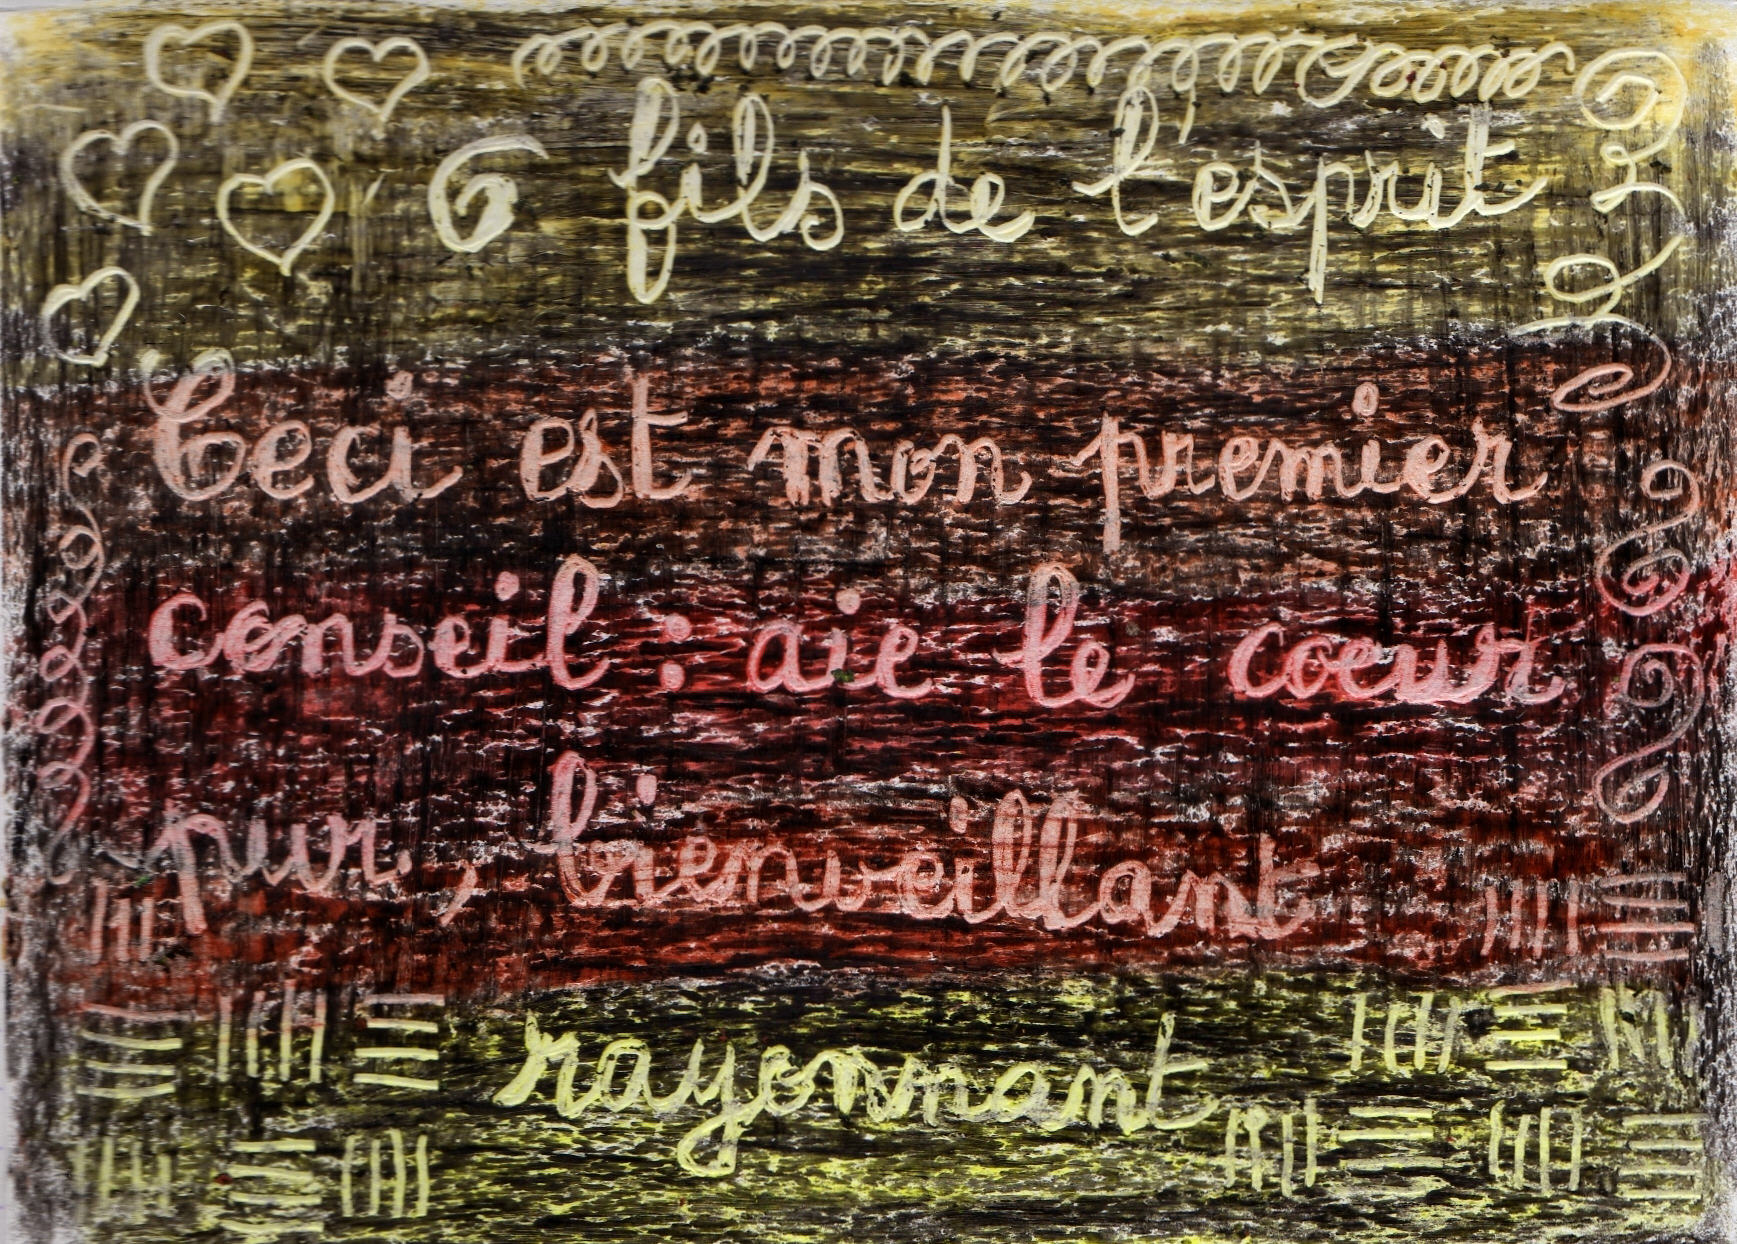 6 fils de l'esprit
Ceci est mon premier
conseil : aie le coeur
pur, bienveillant
rayonnant